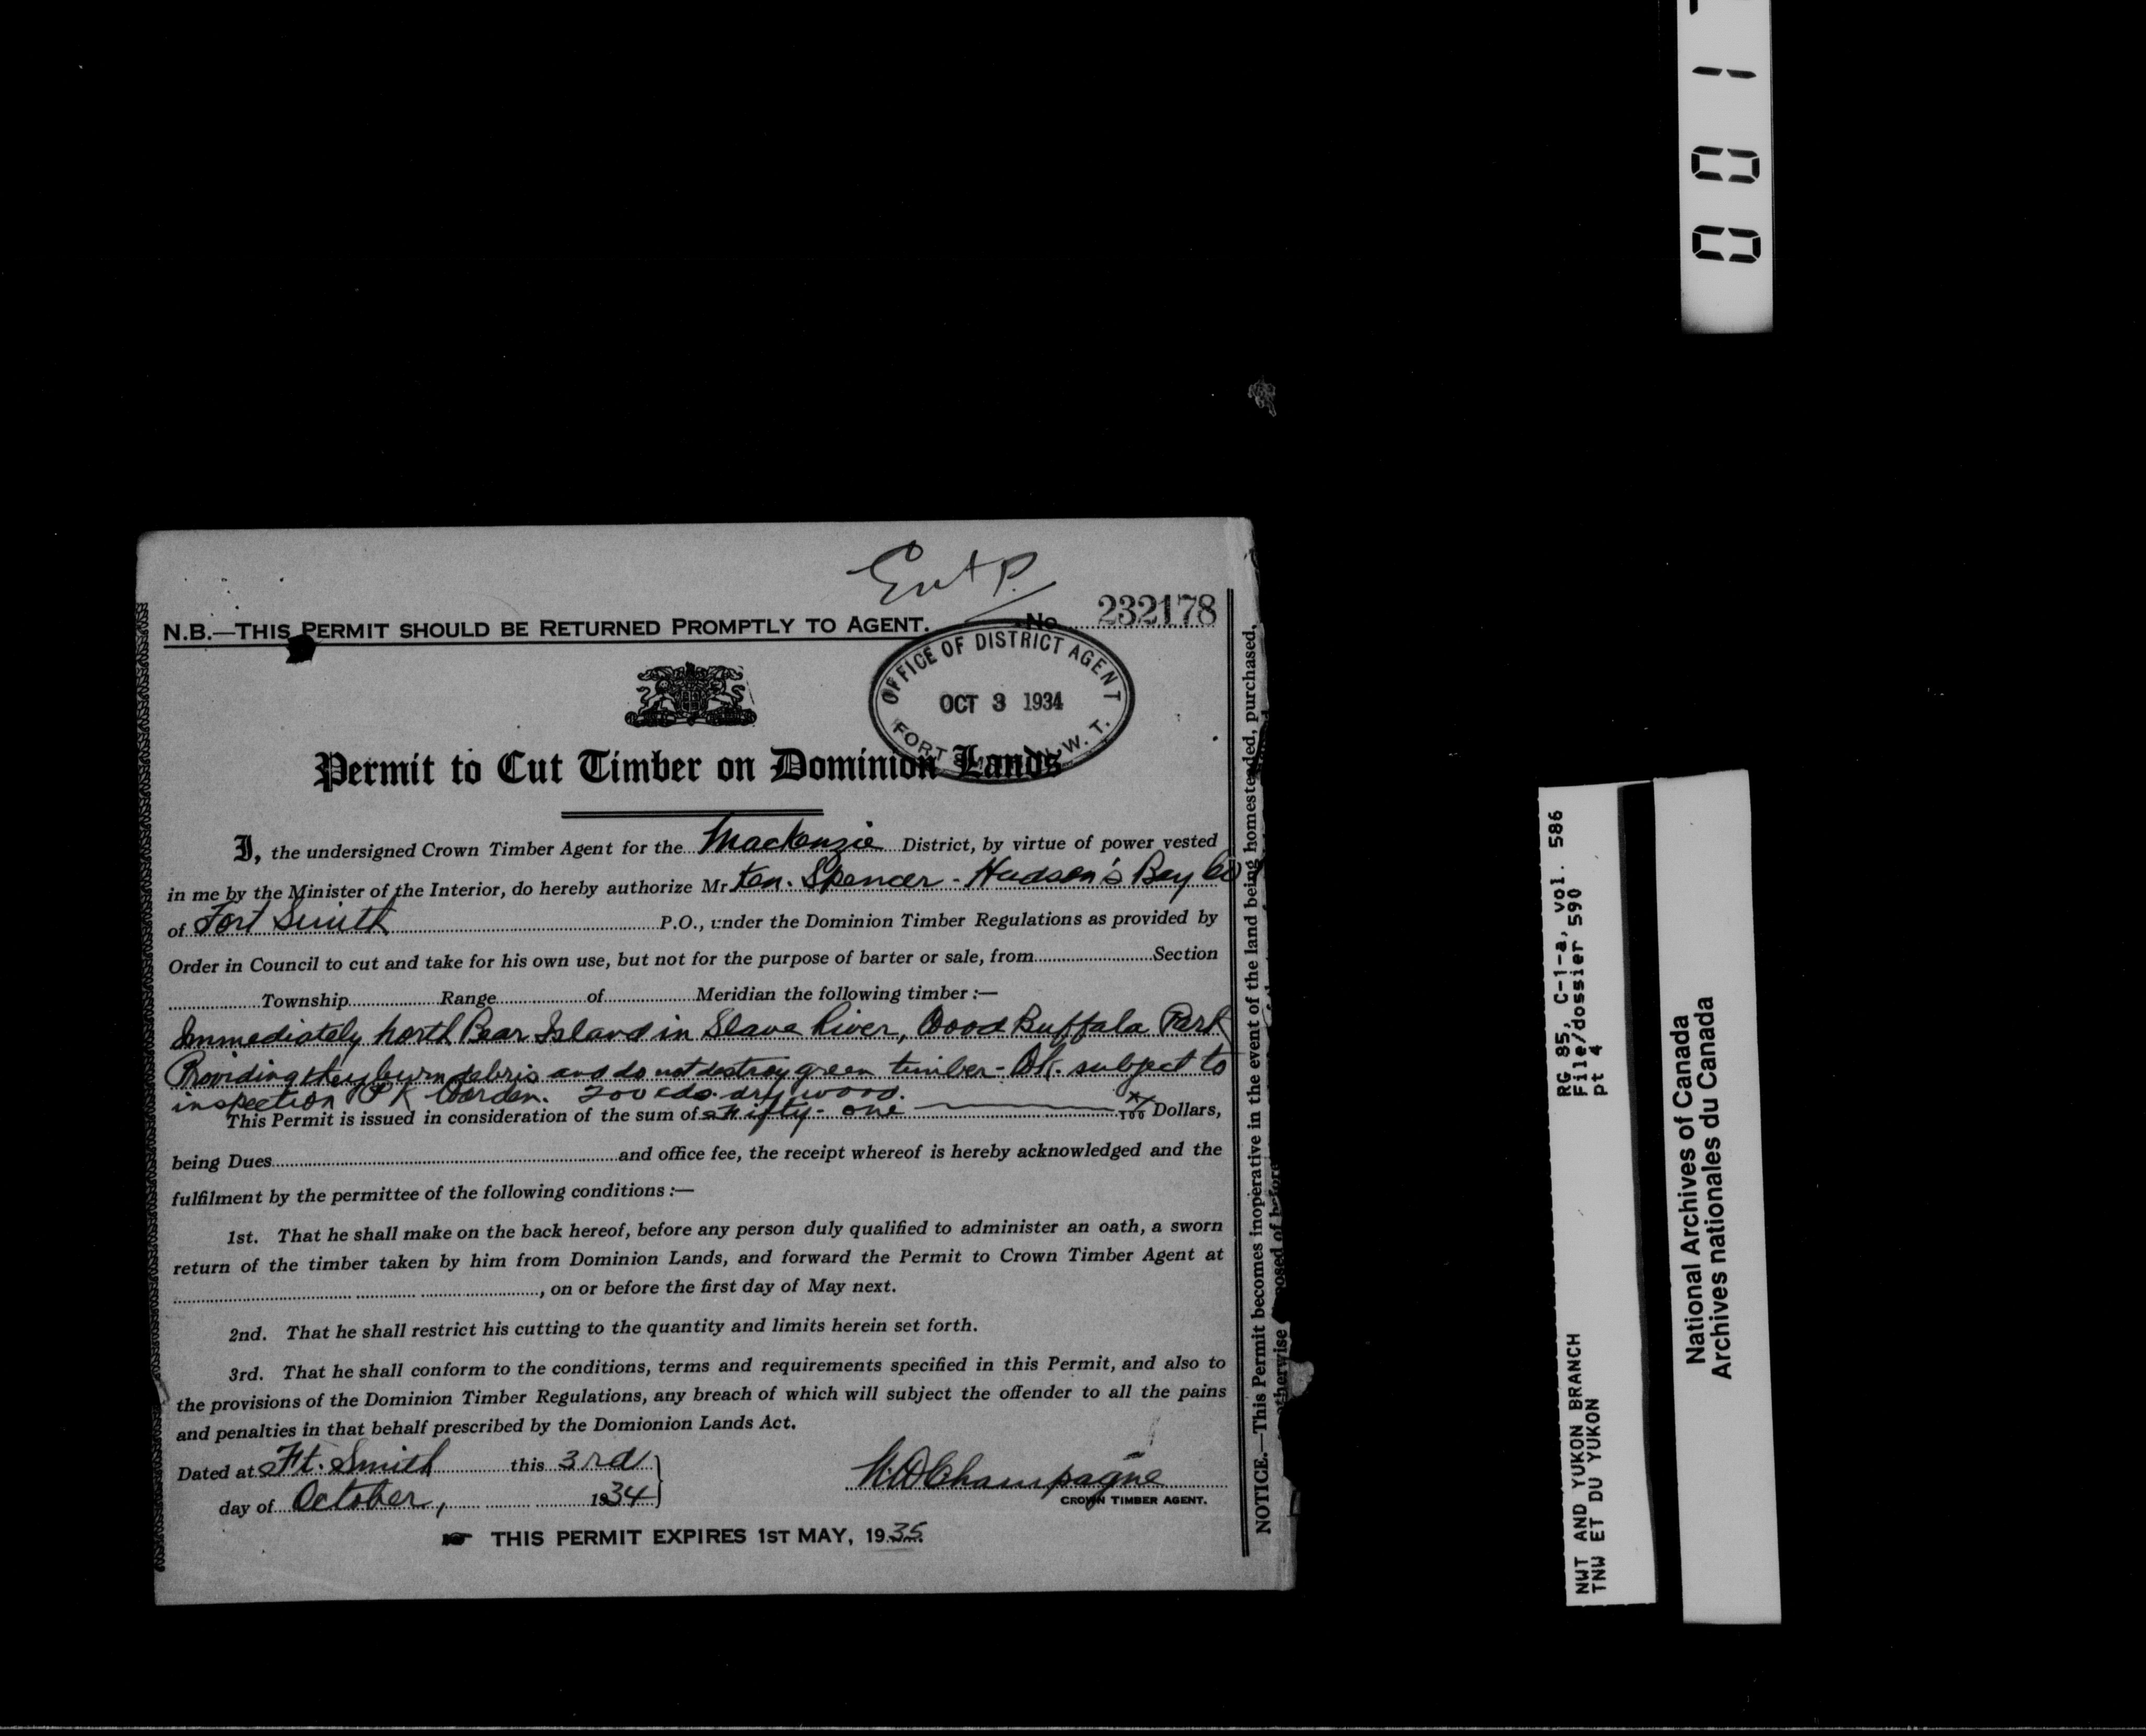 Ent P.
N.B.—THIS PERMIT SHOULD BE RETURNED PROMPTLY TO AGENT. No. 232178
OFFICE OF DISTRICT AGENT
OCT 3 1934
FORT W. T.
Permit to Cut Timber on Dominion Lands
I, the undersigned Crown Timber Agent for the Mackenzie District, by virtue of power vested
in me by the Minister of the Interior, do hereby authorize Mr Ken. Spencer - Hudson's Bay Co
of Fort Smith P.O., under the Dominion Timber Regulations as provided by
Order in Council to cut and take for his own use, but not for the purpose of barter or sale, from Section
Township Range of Meridian the following timber :—
Immediately north Bear Island in Slave River, Wood Buffalo Park
Providing they burn debris and do not destroy green timber - OK. subject to
inspection Pk Warden. 200 cds. dry wood.
This Permit is issued in consideration of the sum of Fifty - one x/100 Dollars,
being Dues and office fee, the receipt whereof is hereby acknowledged and the
fulfilment by the permittee of the following conditions :—
1st. That he shall make on the back hereof, before any person duly qualified to administer an oath, a sworn
return of the timber taken by him from Dominion Lands, and forward the Permit to Crown Timber Agent at
, on or before the first day of May next.
2nd. That he shall restrict his cutting to the quantity and limits herein set forth.
3rd. That he shall conform to the conditions, terms and requirements specified in this Permit, and also to
the provisions of the Dominion Timber Regulations, any breach of which will subject the offender to all the pains
and penalties in that behalf prescribed by the Domionion Lands Act.
Dated at Ft. Smith this 3rd
day of October, 1934
Champagne
CROWN TIMBER AGENT.
THIS PERMIT EXPIRES 1ST MAY, 1935.
NOTICE.—This Permit becomes inoperative in the event of the land being homesteaded, purchased,
otherwise posed of before
001
RG 85, C-1-a, vol. 586
File/dossier 590
pt 4
NWT AND YUKON BRANCH
TNW ET DU YUKON
National Archives of Canada
Archives nationales du Canada